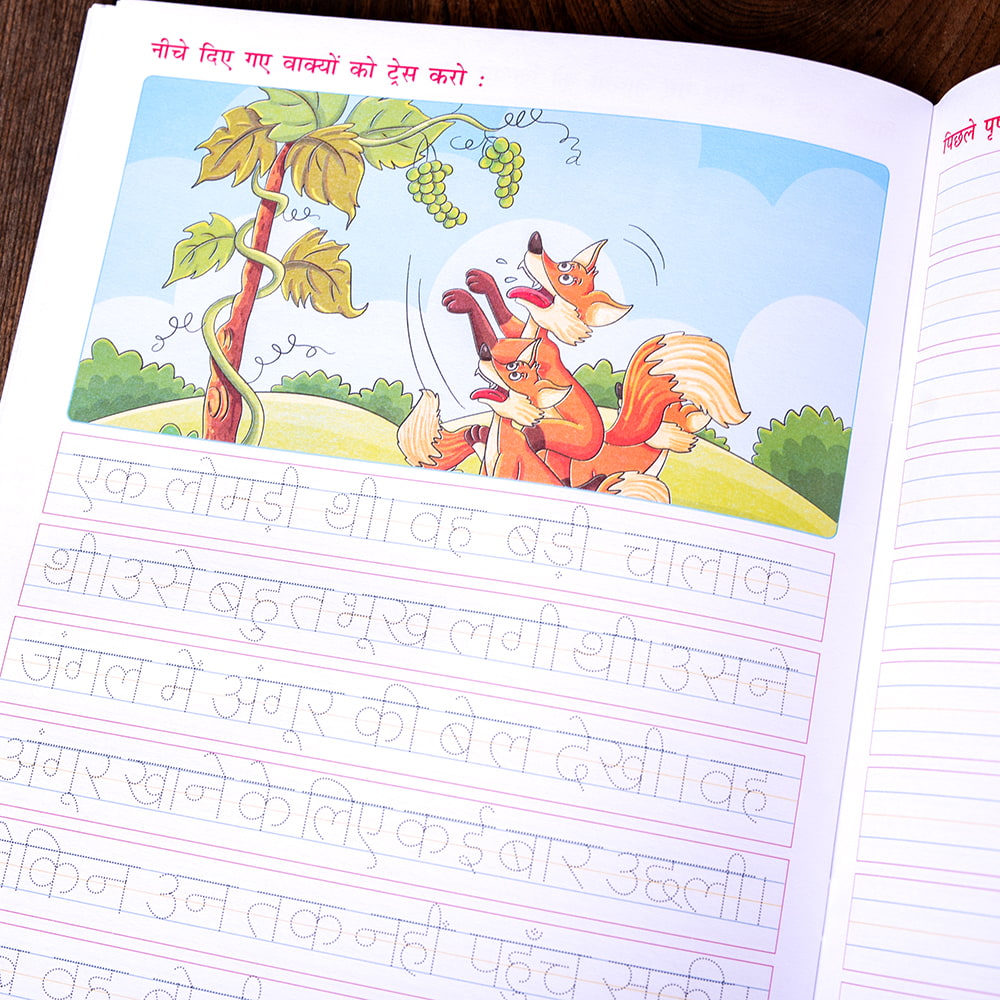 नीचे दिए गए वाक्यों को ट्रेस करो :
एक लोमड़ी थी। वह बड़ी चालाक
थी। उसे बहुत भूख लगी थी। उसने
जंगल में अंगूर की बेल देखी। वह
अंगूर खाने के लिए कई बार उछली।
उन तक नहीं पहुँच सकी
वह
पिछले